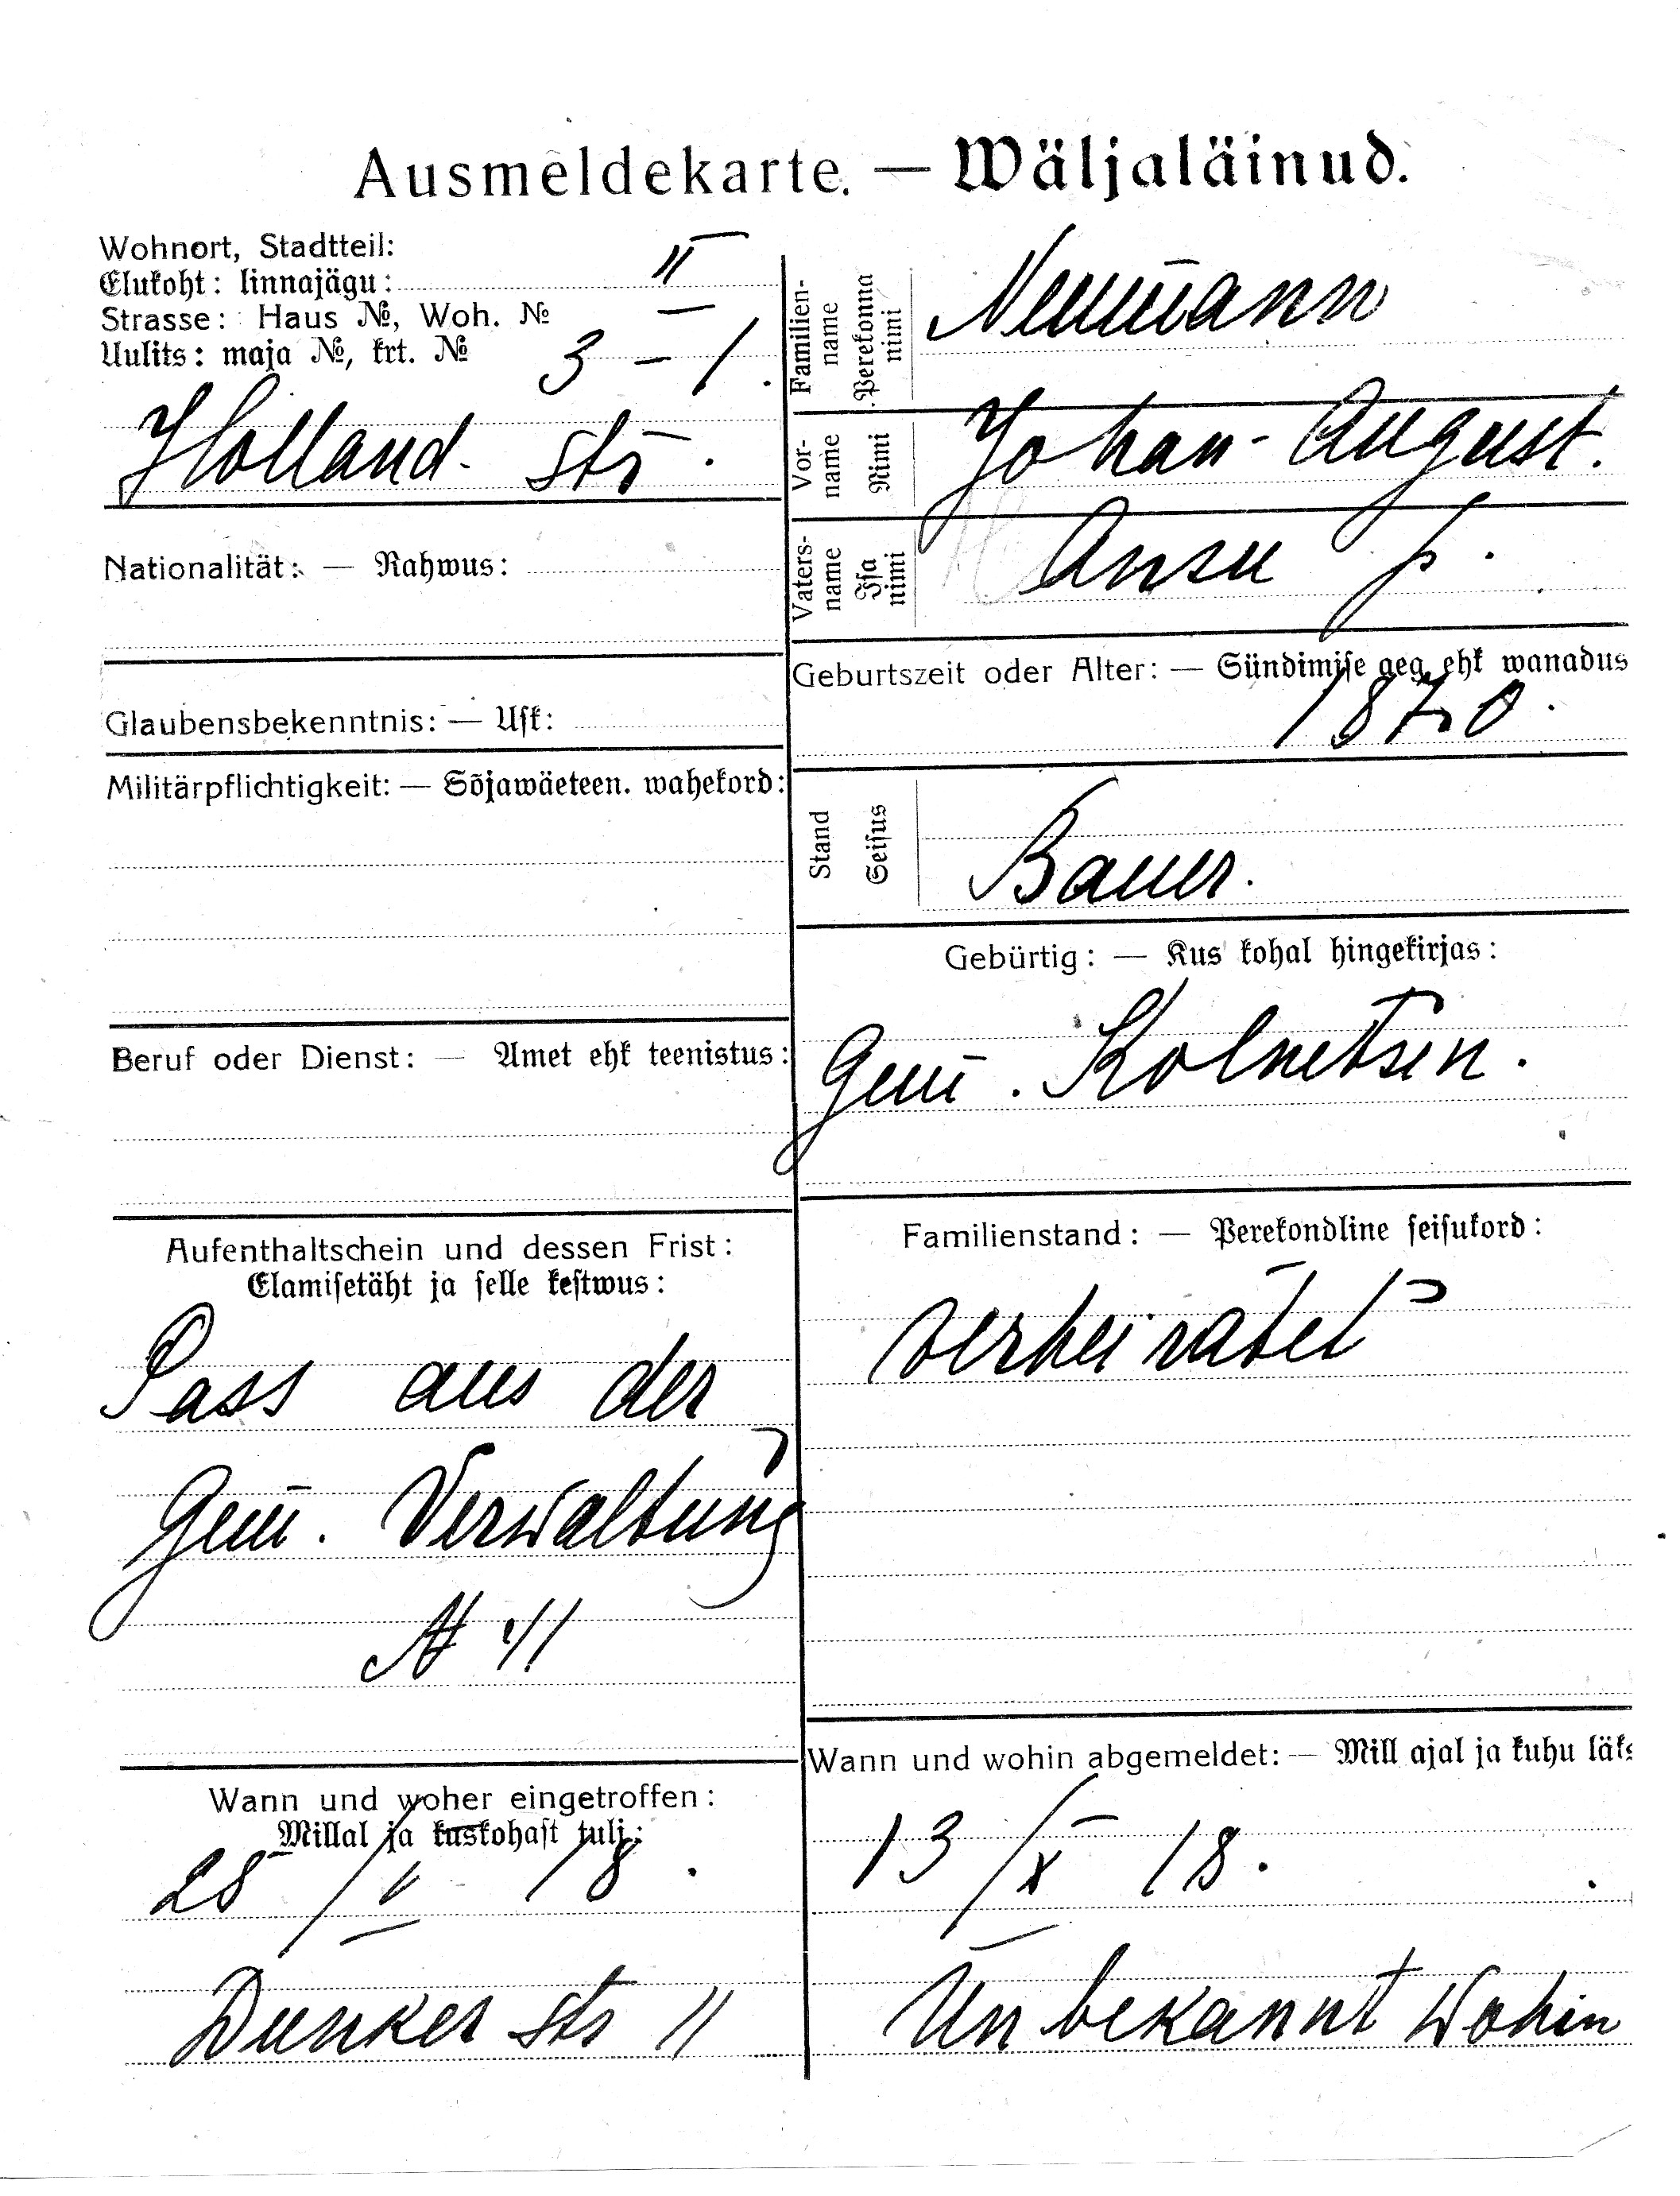 Ausmeldekarte. — Wäljaläinud.
Wohnort, Stadtteil:
Elukoht: linnajägu: II
Strasse: Haus №, Woh. №
Uulits: maja №, krt. № 3 – 1.
Holland. str.
Nationalität: — Rahwus:
Glaubensbekenntnis: — Usk:
Militärpflichtigkeit: — Sõjawäeteen. wahekord:
Beruf oder Dienst: — Amet ehk teenistus:
Aufenthaltschein und dessen Frist:
Elamisetäht ja selle kestwus:
Pass aus der
Gem. Verwaltung
№ 41
Wann und woher eingetroffen:
Millal ja kuskohast tulj:
28/V 18.
Dunker str 11
Familien-
name
Perekonna
nimi
Neumann
Vor-
name
Nimi
Johan-August.
Vaters-
name
Isa
nimi
Ansu p.
Geburtszeit oder Alter: — Sündimise aeg ehk wanadus
1870.
Stand
Seisus
Bauer.
Gebürtig: — Kus kohal hingekirjas:
Gem. Kolnetsen.
Familienstand: — Perekondline seisukord:
verheiratet
Wann und wohin abgemeldet: — Mill ajal ja kuhu läks
13/X 18.
Unbekannt wohin